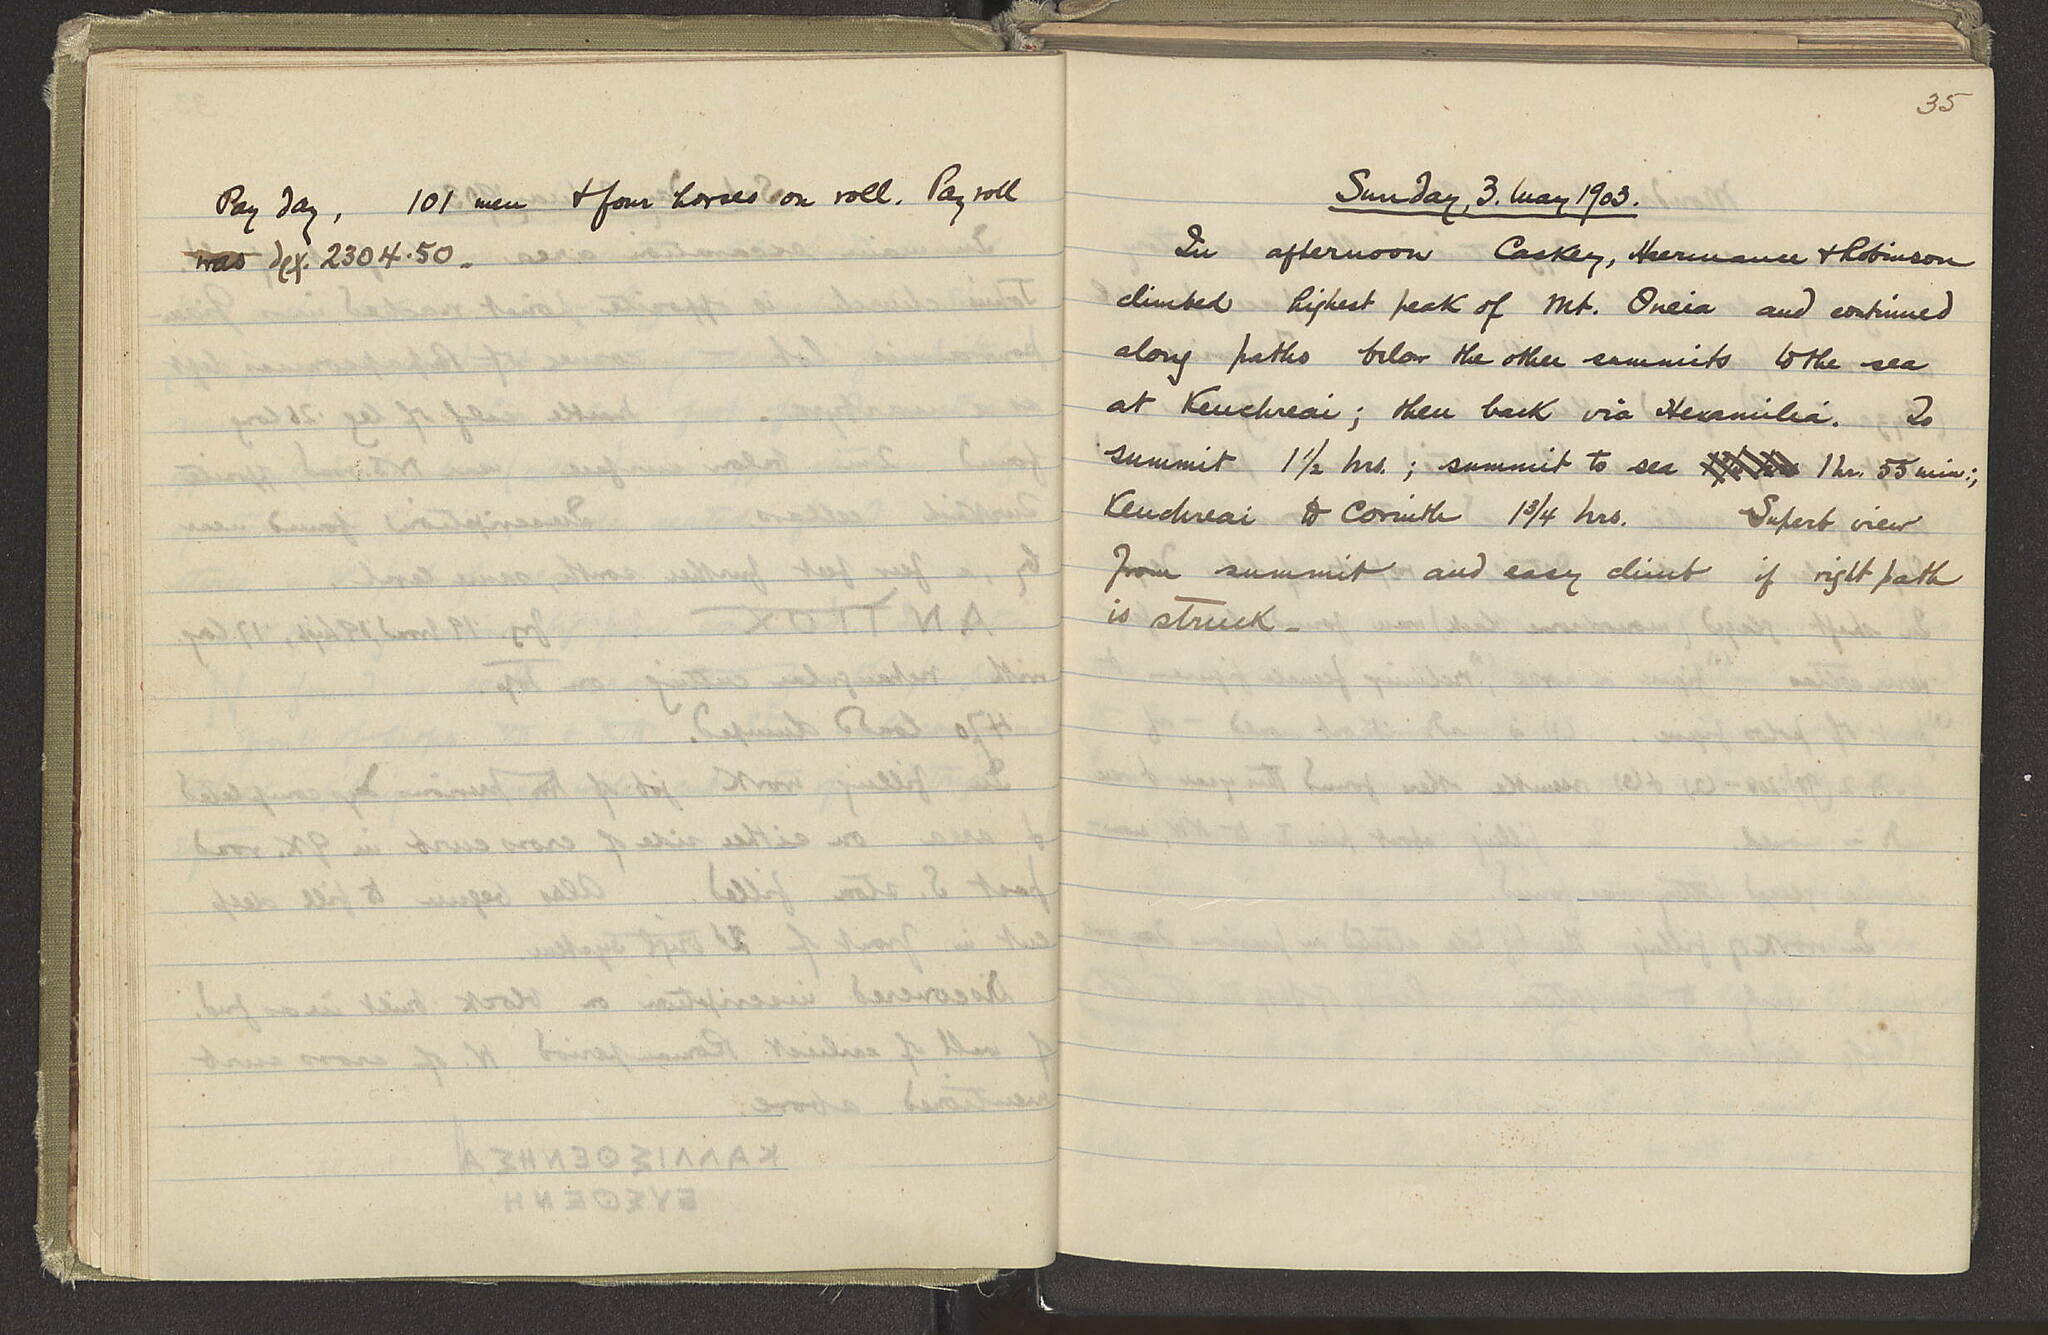 Pay day, 101 men & four horses on roll. Pay roll
was δρχ. 2304.50 _
35
Sunday, 3. May 1903.
In afternoon Caskey, Heermance & Robinson
climbed highest peak of Mt. Oneia and continued
along paths below the other summits to the sea
at Kenchreai; then back via Hexamilia. To
summit 1 1/2 hrs.; summit to sea 1 hr. 55 min.;
Kenchreai to Corinth 1 3/4 hrs. Superb view
from summit and easy climb if right path
is struck _